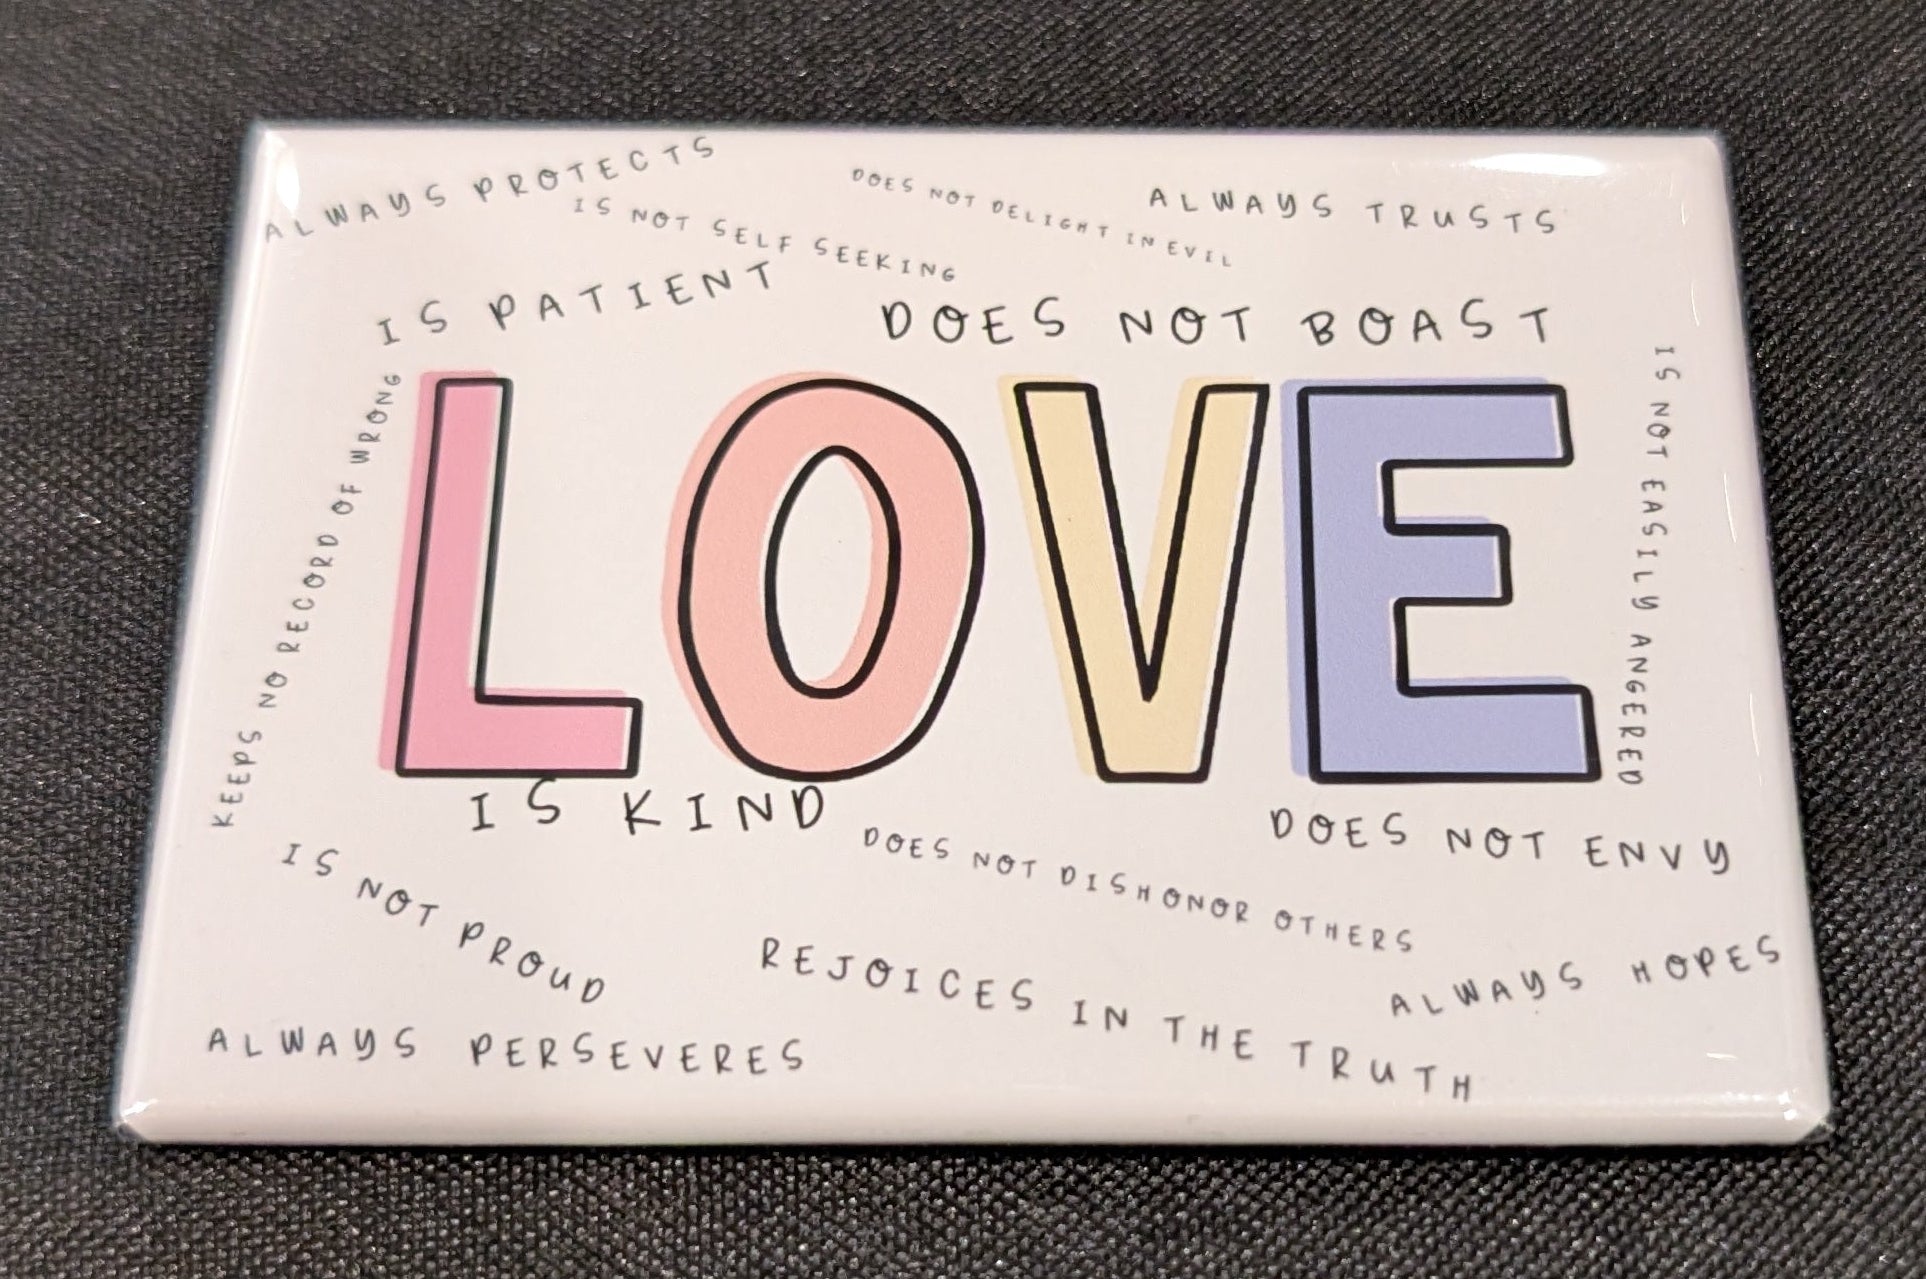 ALWAYS PROTECTS
IS NOT SELF SEEKING
DOES NOT DELIGHT IN EVIL
ALWAYS TRUSTS
IS PATIENT
DOES NOT BOAST
KEEPS NO RECORD OF WRONG
LOVE
IS NOT EASILY ANGERED
IS KIND
DOES NOT DISHONOR OTHERS
DOES NOT ENVY
IS NOT PROUD
REJOICES IN THE TRUTH
ALWAYS HOPES
ALWAYS PERSEVERES